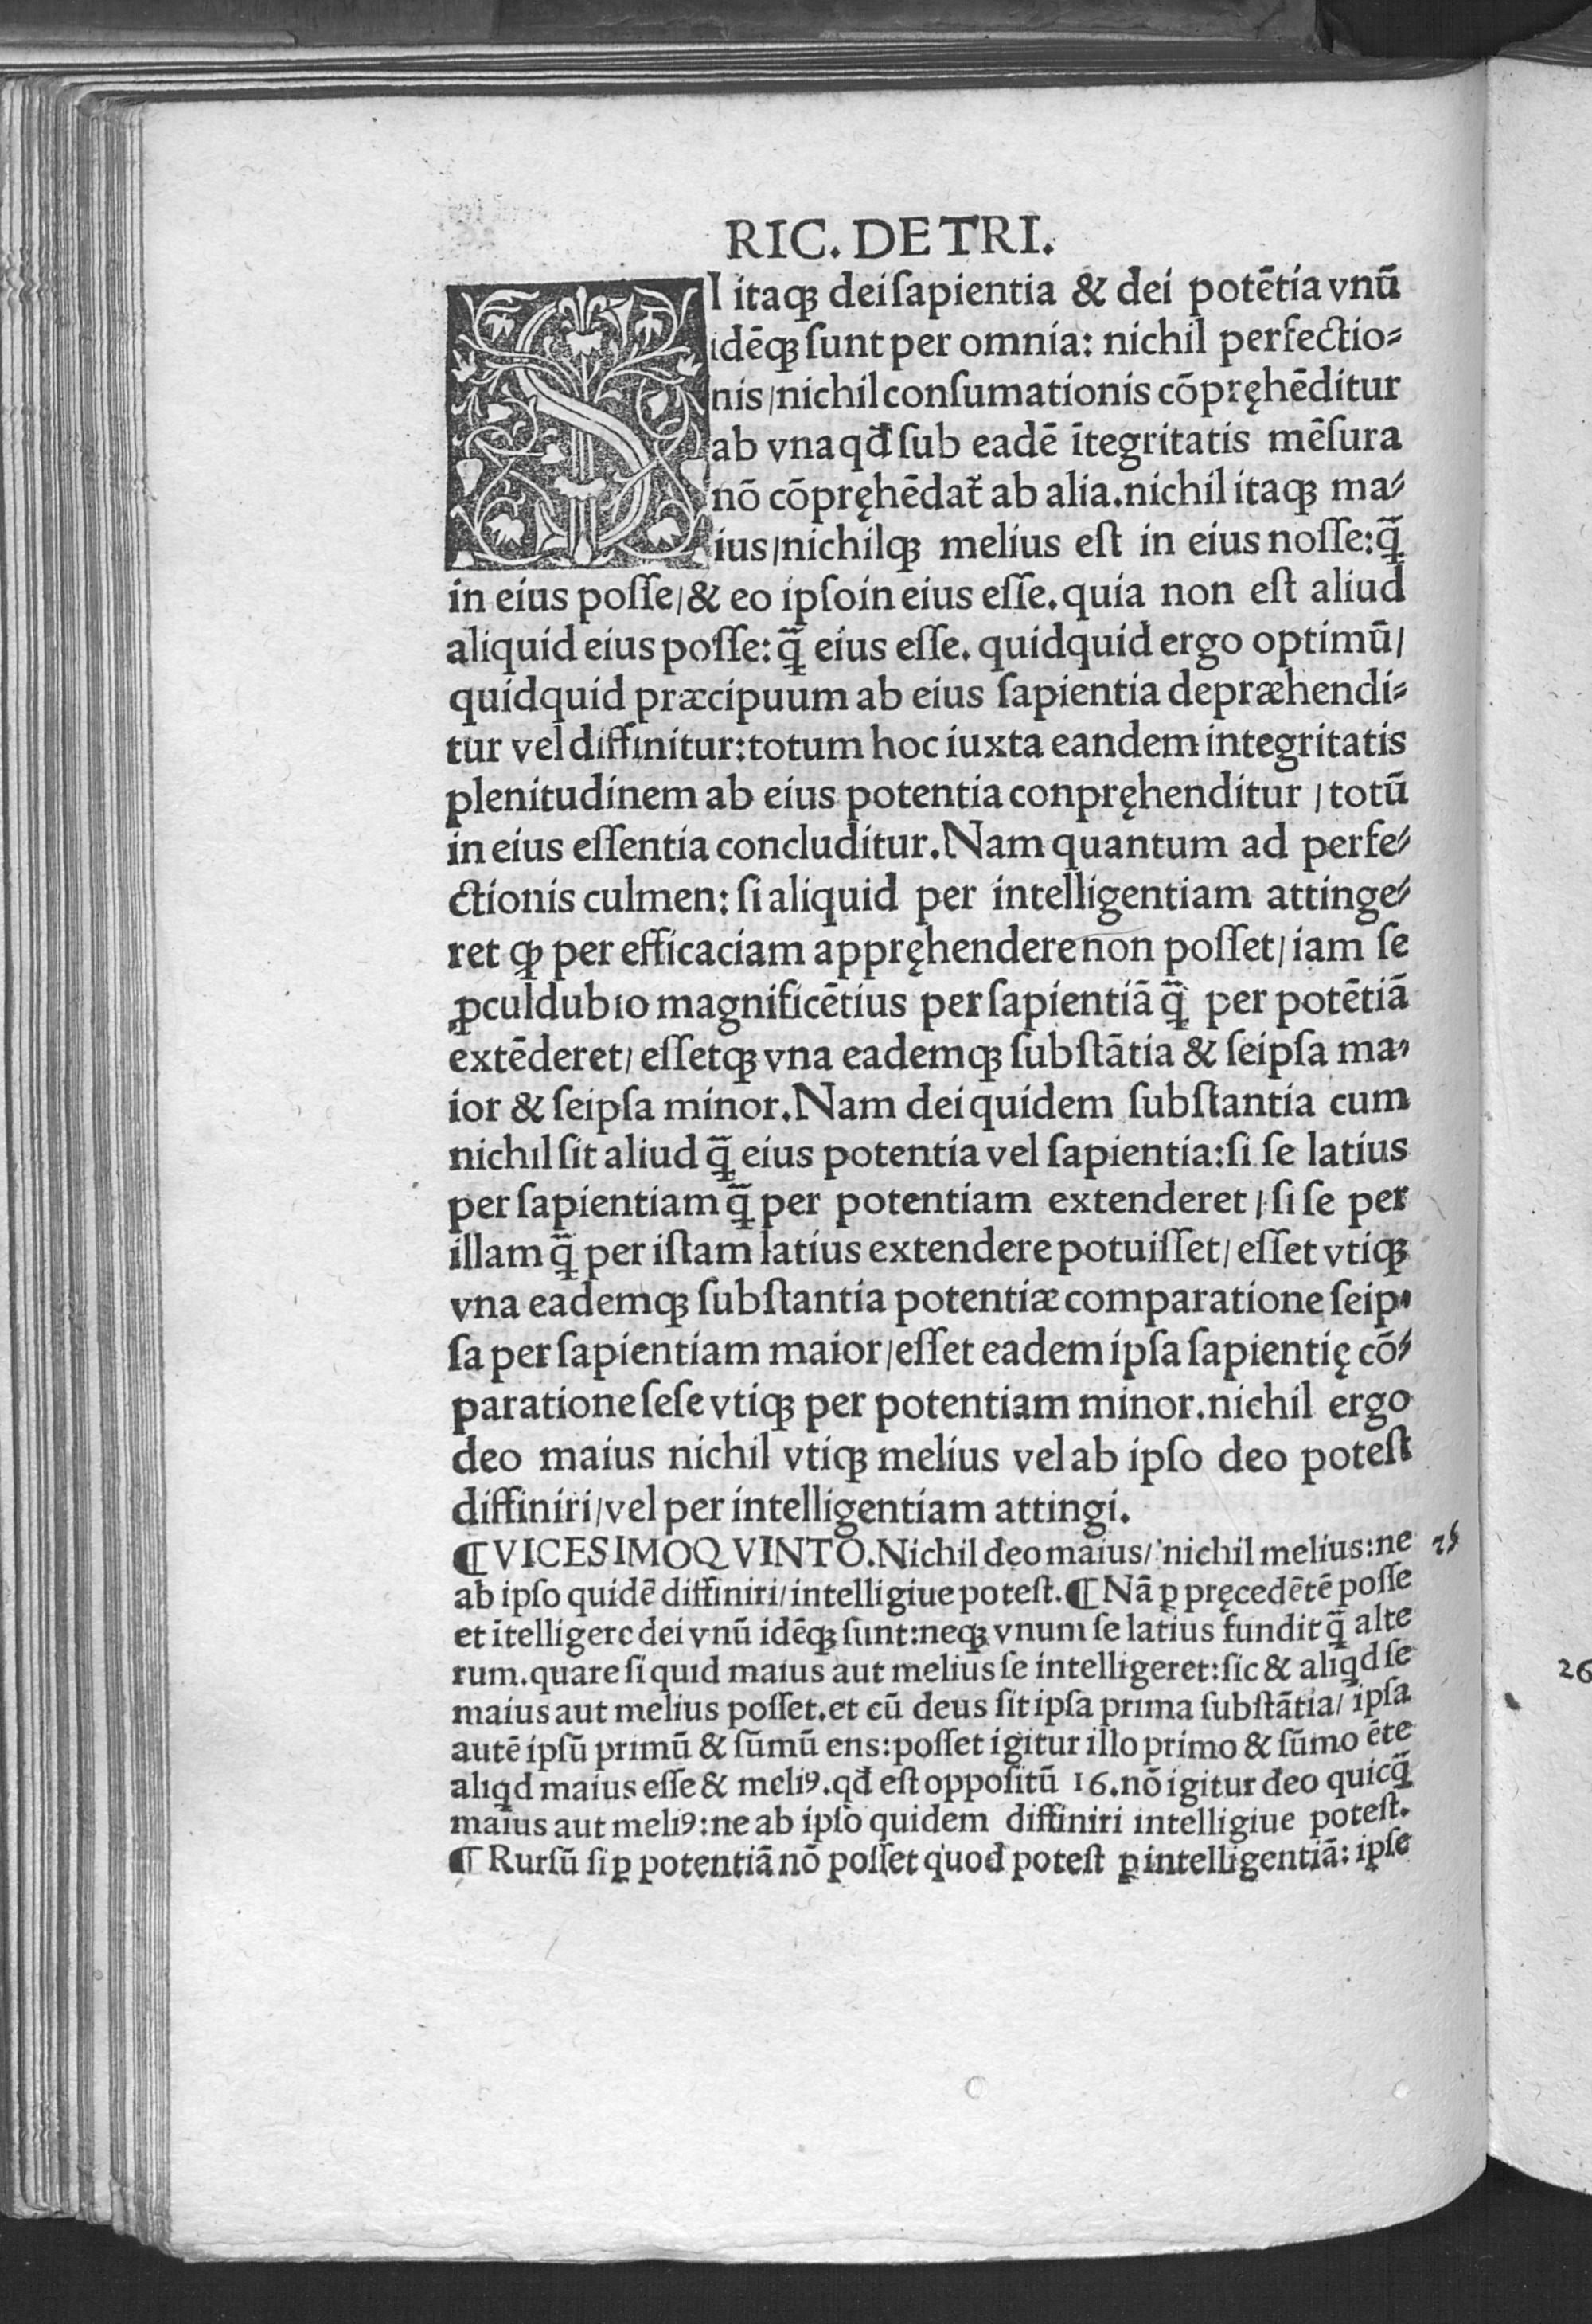 RIC. DE TRI.
SI itaqꝫ dei ſapientia & dei potētia vnū
idēqꝫ ſunt per omnia: nichil perfectio⸗
nis/nichil conſumationis cōpręhēditur
ab vna qđ ſub eadē ītegritatis mēſura
nō cōpręhēdat᷑ ab alia. nichil itaqꝫ ma⸗
ius/nichilqꝫ melius eſt in eius noſſe: q̄
in eius poſſe/& eo ipſo in eius eſſe. quia non eſt aliud
aliquid eius poſſe: q̄ eius eſſe. quidquid ergo optimū/
quidquid præcipuum ab eius ſapientia depræhendi⸗
tur vel diffinitur: totum hoc iuxta eandem integritatis
plenitudinem ab eius potentia conpręhenditur / totū
in eius eſſentia concluditur. Nam quantum ad perfe⸗
ctionis culmen: ſi aliquid per intelligentiam attinge⸗
ret ꝙ per efficaciam appręhendere non poſſet/ iam ſe
ꝓculdubio magnificētius per ſapientiā q̄ per potētiā
extēderet/ eſſetqꝫ vna eademqꝫ ſubſtātia & ſeipſa ma⸗
ior & ſeipſa minor. Nam dei quidem ſubſtantia cum
nichil ſit aliud q̄ eius potentia vel ſapientia: ſi ſe latius
per ſapientiam q̄ per potentiam extenderet / ſi ſe per
illam q̄ per iſtam latius extendere potuiſſet/ eſſet vtiqꝫ
vna eademqꝫ ſubſtantia potentiæ comparatione ſeip⸗
ſa per ſapientiam maior/eſſet eadem ipſa ſapientię cō⸗
paratione ſeſe vtiqꝫ per potentiam minor. nichil ergo
deo maius nichil vtiqꝫ melius vel ab ipſo deo poteſt
diffiniri/vel per intelligentiam attingi.
¶ VICESIMOQVINTO. Nichil deo maius/ nichil melius: ne 25
ab ipſo quidē diffiniri/intelligiue poteſt. ¶ Nā ꝑ pręcedētē poſſe
et ītelligere dei vnū idēqꝫ ſunt: neqꝫ vnum ſe latius fundit q̄ alte
rum. quare ſi quid maius aut melius ſe intelligeret: ſic & aliqd ſe
maius aut melius poſſet. et cū deus ſit ipſa prima ſubſtātia/ ipſa
autē ipſū primū & ſūmū ens: poſſet igitur illo primo & ſūmo ēte
aliqd maius eſſe & meliꝰ. qđ eſt oppoſitū 16. nō igitur deo quicq̄
maius aut meliꝰ: ne ab ipſo quidem diffiniri intelligiue poteſt.
¶ Rurſū ſi ꝑ potentiā nō poſſet quod poteſt ꝑ intelligentiā: ipſe
26